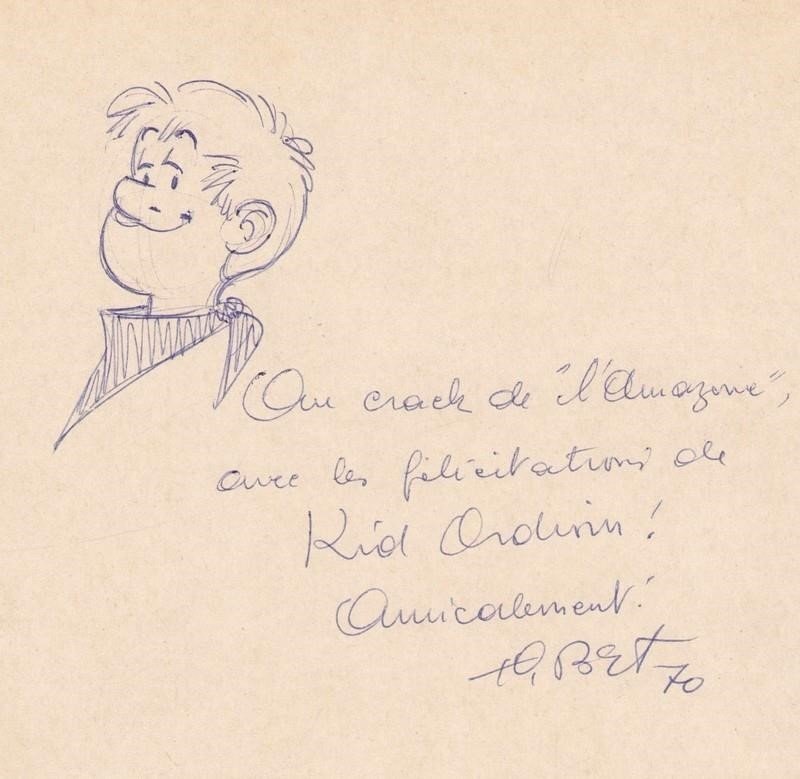 Au crack de "l'Amazone",
avec les félicitations de
Kid Ordinn !
Amicalement !
70